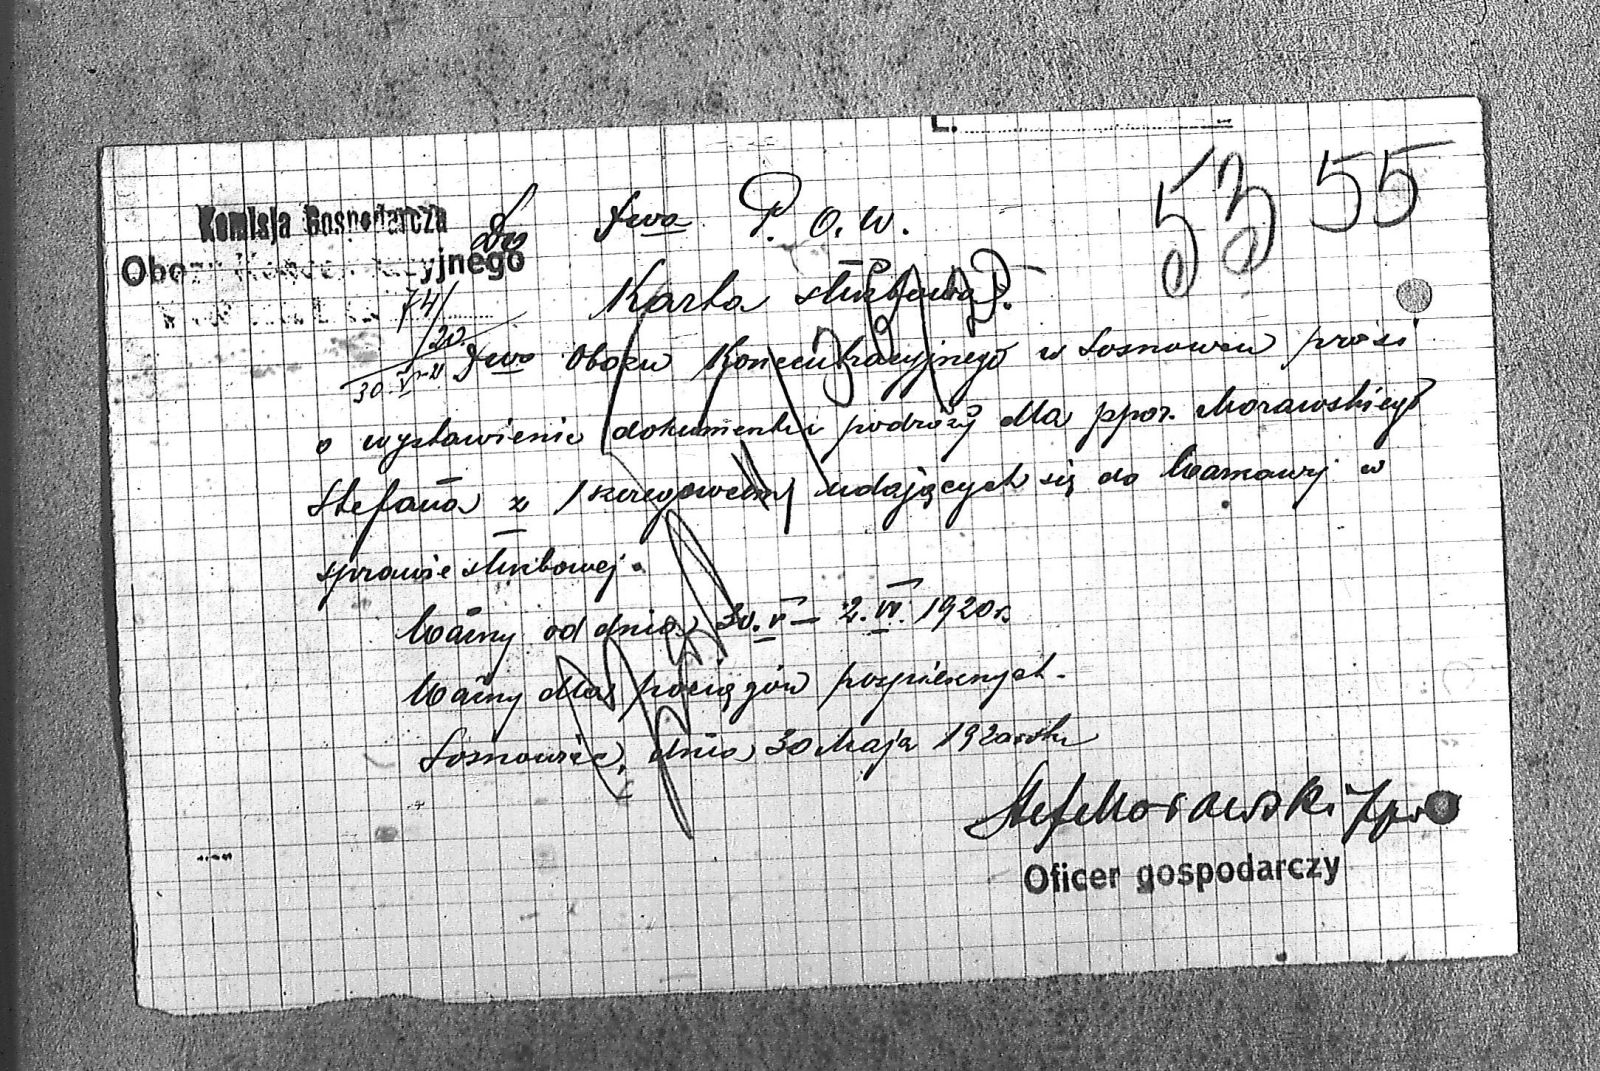 L.
53 55
Komisja Gospodarcza
Obozu Koncentracyjnego
74/20
30.V.
Do Dwa P. O. W.
Karta służbowa.
Dwo Obozu Koncentracyjnego w Sosnowcu prosi
o wystawienie dokumentu podróży dla ppor. Morawskiego
Stefana z 1 szeregowcem udających się do Warszawy w
sprawie służbowej.
Ważny od dnia 30.V – 2.VI. 1920 r.
Ważny dla pociągów pospiesznych.
Sosnowiec, dnia 30 Maja 1920 roku
Stef Morawski ppor
Oficer gospodarczy